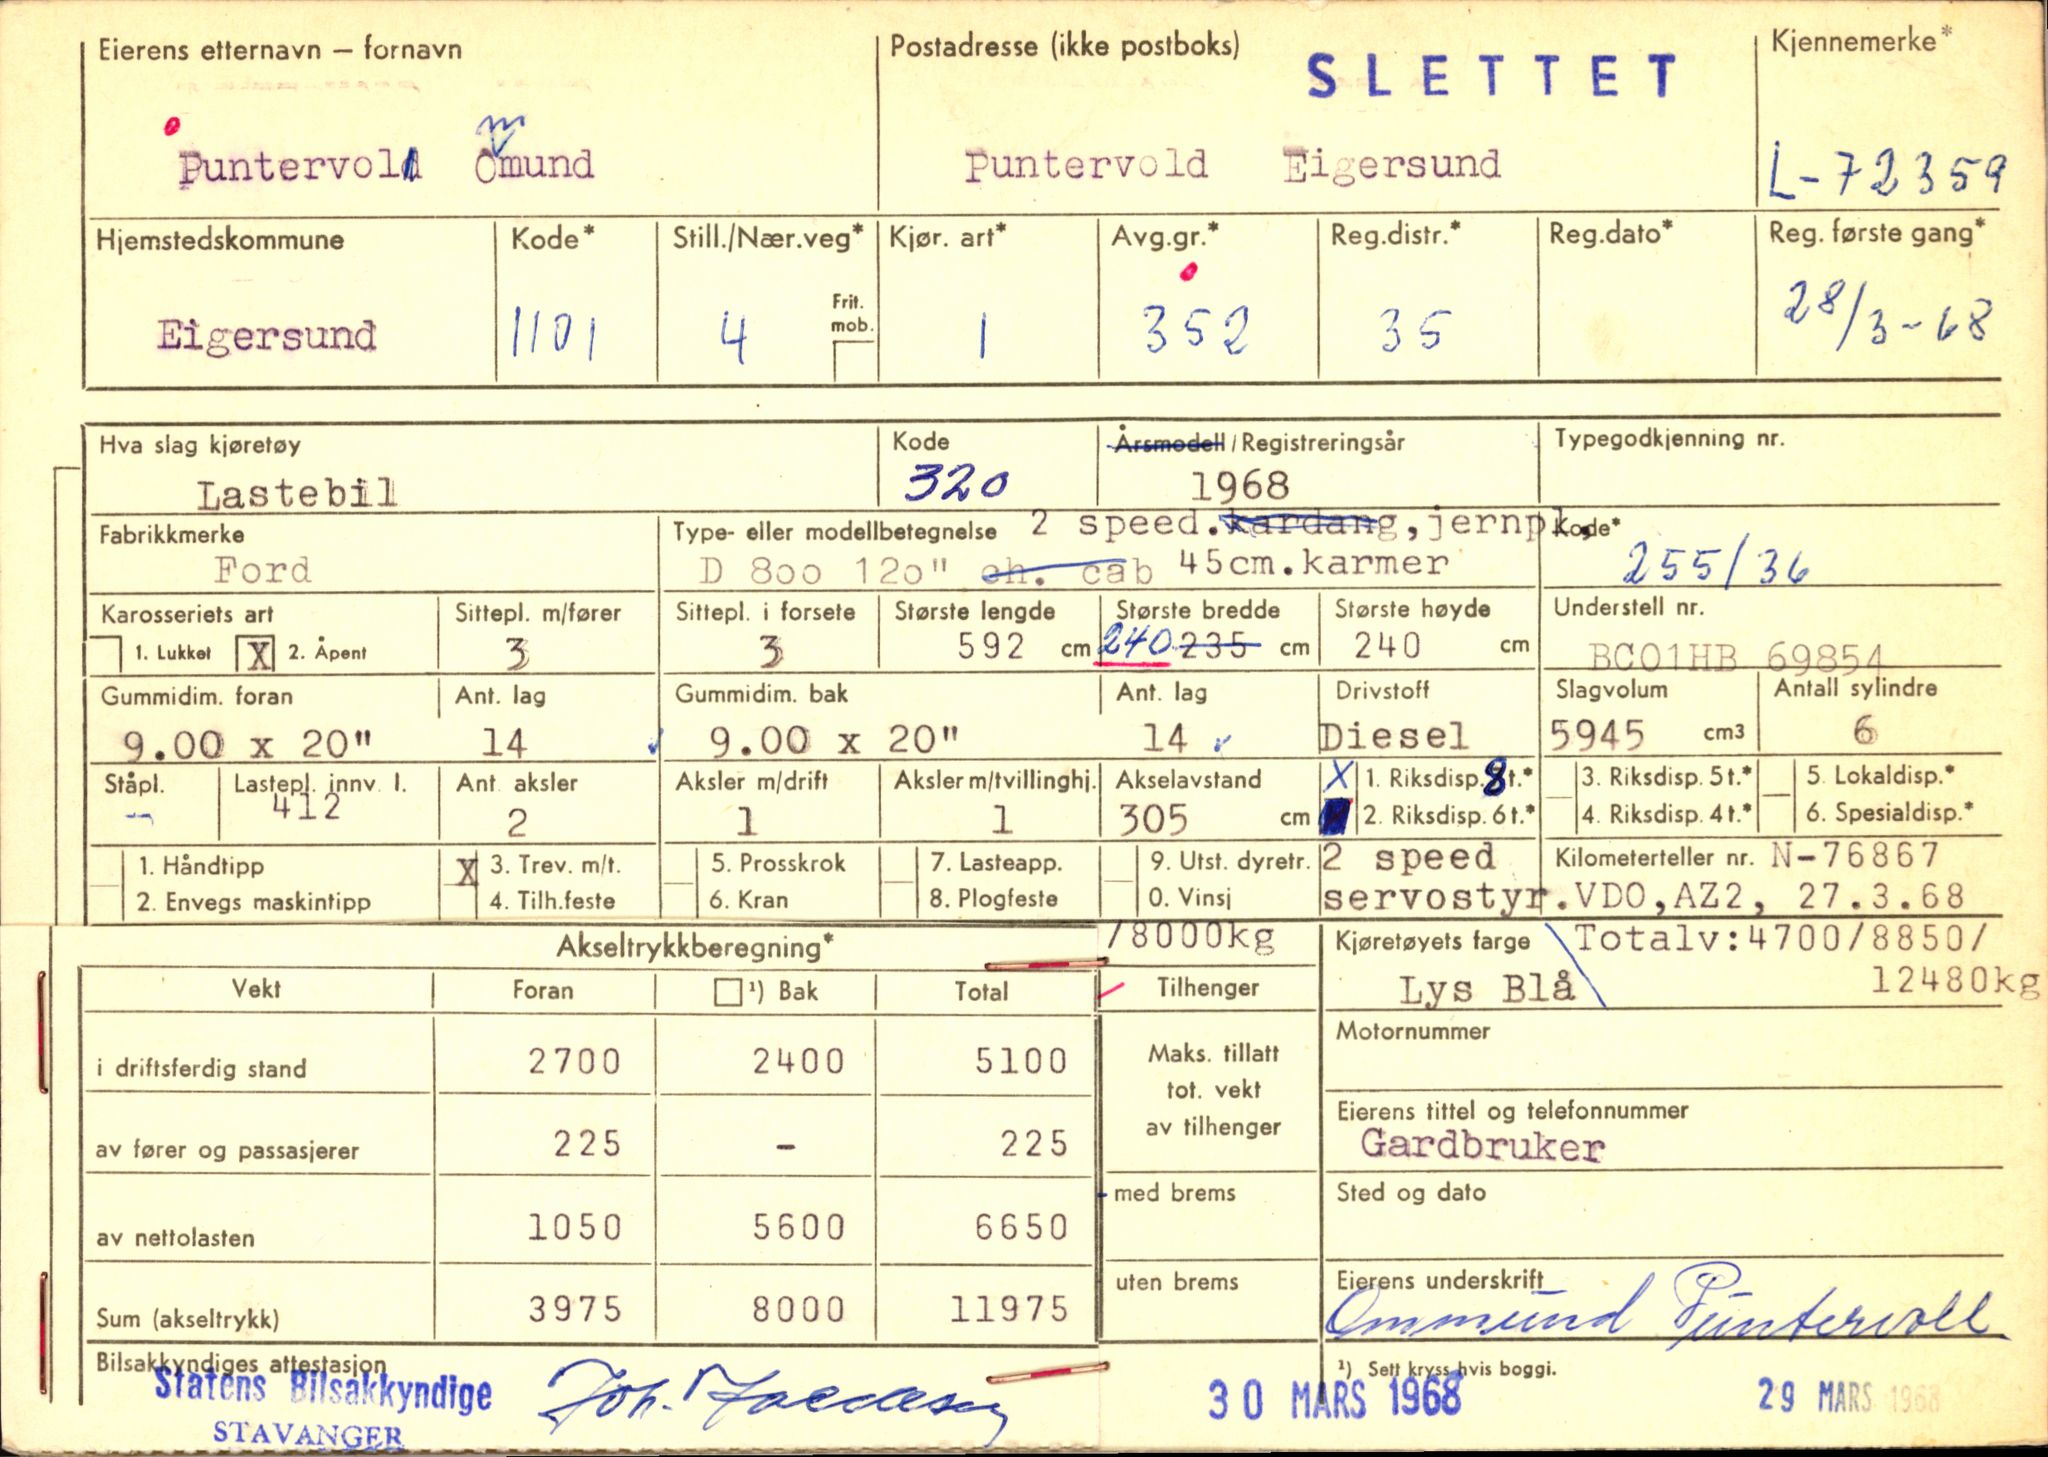 Eierens etternavn – fornavn
Postadresse (ikke postboks)
SLETTET
Kjennemerke*
m
Puntervoll Omund
Puntervold Eigersund
L-72359
Hjemstedskommune
Kode*
Still./Nær.veg*
Kjør. art*
Avg.gr.*
Reg.distr.*
Reg.dato*
Reg. første gang*
Eigersund
1101
4
Frit. mob.
1
352
35
28/3-68
Hva slag kjøretøy
Lastebil
Kode
320
Årsmodell / Registreringsår
1968
Typegodkjenning nr.
Fabrikkmerke
Ford
Type- eller modellbetegnelse 2 speed.kardang,jernpl,
D 8oo 12o" ch. cab 45cm.karmer
Kode*
255/36
Karosseriets art
1. Lukket X 2. Åpent
Sittepl. m/fører
3
Sittepl. i forsete
3
Største lengde
592 cm
Største bredde
240 235 cm
Største høyde
240 cm
Understell nr.
BC01HB 69854
Gummidim. foran
9.00 x 20"
Ant. lag
14
Gummidim. bak
9.00 x 20"
Ant. lag
14
Drivstoff
Diesel
Slagvolum
5945 cm3
Antall sylindre
6
Ståpl.
-
Lastepl. innv. l.
412
Ant. aksler
2
Aksler m/drift
1
Aksler m/tvillinghj.
1
Akselavstand
305 cm
X 1. Riksdisp. 8t.*
2. Riksdisp. 6t.*
3. Riksdisp. 5t.*
4. Riksdisp. 4t.*
5. Lokaldisp.*
6. Spesialdisp.*
1. Håndtipp
2. Envegs maskintipp
X 3. Trev. m/t.
4. Tilh.feste
5. Prosskrok
6. Kran
7. Lasteapp.
8. Plogfeste
9. Utst. dyretr.
0. Vinsj
2 speed
servostyr.
Kilometerteller nr. N-76867
VDO,AZ2, 27.3.68
Akseltrykkberegning*
/8000kg
Kjøretøyets farge
Lys Blå
Totalv:4700/8850/
12480kg
Vekt Foran ¹) Bak Total
Tilhenger
i driftsferdig stand 2700 2400 5100
av fører og passasjerer 225 - 225
av nettolasten 1050 5600 6650
Sum (akseltrykk) 3975 8000 11975
Maks. tillatt
tot. vekt
av tilhenger
med brems
uten brems
Motornummer
Eierens tittel og telefonnummer
Gardbruker
Sted og dato
Eierens underskrift
Ommund Puntervoll
Bilsakkyndiges attestasjon
Statens Bilsakkyndige
STAVANGER
¹) Sett kryss hvis boggi.
30 MARS 1968
29 MARS 1968